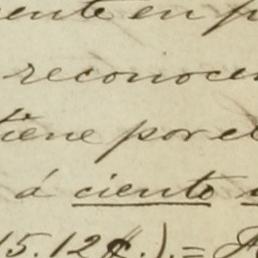 ente en p
reconocer
tiene por el
á ciento
15.12¢.).=